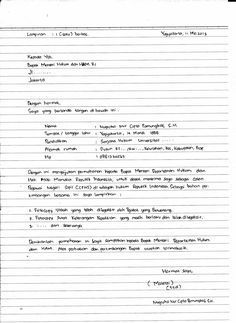 Lampiran : 1 (satu) berkas Yogyakarta, 11 Mei 2013
Kepada Yth.
Bapak Menteri Hukum dan HAM RI
Jl. ......
Jakarta
Dengan hormat,
Saya yang bertanda tangan di bawah ini :
Nama : Nugroho Nur Cipto Pamungkas, S.H.
Tempat / tanggal lahir : Yogyakarta, 14 Maret 1988
Pendidikan : Sarjana Hukum Universitas
Alamat rumah : Dusun Kelurahan, Kec, Kabupaten, Prov
HP :
Dengan ini mengajukan permohonan kepada Bapak Menteri Departemen Hukum dan
Hak Asasi Manusia Republik Indonesia, untuk dapat menerima saya sebagai Calon
Pegawai Negeri Sipil (CPNS) di wilayah hukum Republik Indonesia. Sebagai bahan per-
timbangan bersama ini saya lampirkan :
1. Fotocopy Ijazah yang telah dilegalisir oleh Pejabat yang berwenang.
2. Fotocopy Surat Keterangan Kepolisian yang masih berlaku dan telah dilegalisir.
3. dan seterusnya
Demikianlah permohonan ini saya sampaikan kepada Bapak Menteri Departemen Hukum
dan HAM. Atas perhatian dan pertimbangan Bapak ucapkan terimakasih.
Hormat saya,
(Materai)
(ttd)
Nugroho Nur Cipto Pamungkas, S.H.